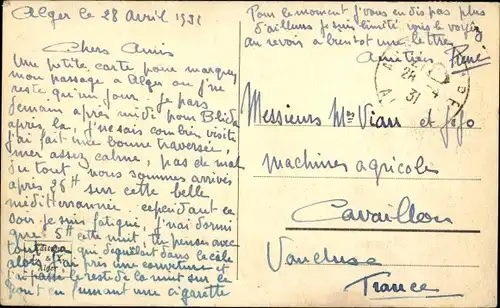 Alger le 28 Avril 1931
Chers Amis
Une petite carte pour marquer
mon passage a Alger ou je ne
reste qu'un jour. Je pars
demain après midi pour Blida
après la, j'ai fait une visite
j'ai fait une bonne traversée,
mer assez calme, pas de mal
du tout nous sommes arrivés
après 26H sur cette belle
méditerrannée. cependant ce
soir je suis fatigué. J'ai dormi
que 5H cette nuit, tu penses avec
tout ça qui dans la cale
alors j'ai pris une couverture et
j'ai passé le reste de la nuit sur le
pont en fumant une cigarette
Pour le moment j'vous en dis pas plus
d'ailleurs je suis limité vous le voyez
au revoir a bientot une lettre
Amitiés René
28 -4
31
Messieurs Mrs Vian et Jojo
machines agricole
Cavaillon
Vaucluse
France